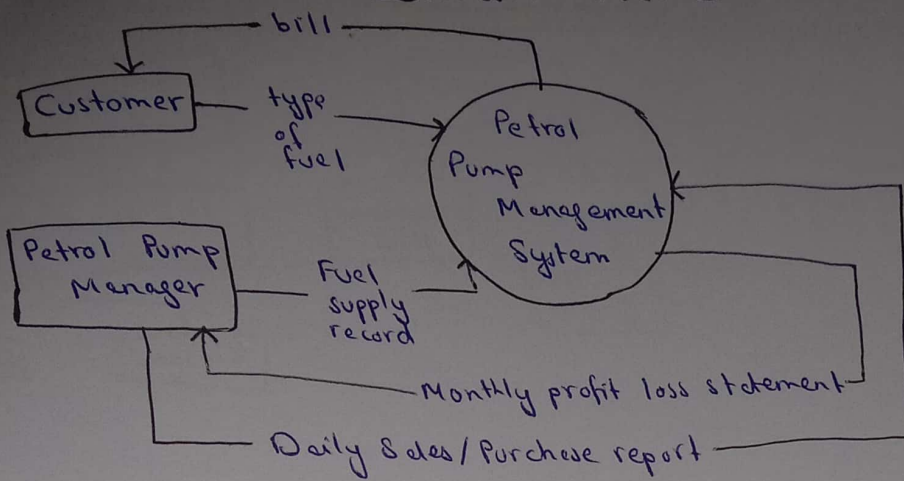 bill
Customer
type
of
fuel
Petrol
Pump
Management
System
Petrol Pump
Manager
Fuel
supply
record
Monthly profit loss statement
Daily Sales/Purchase report